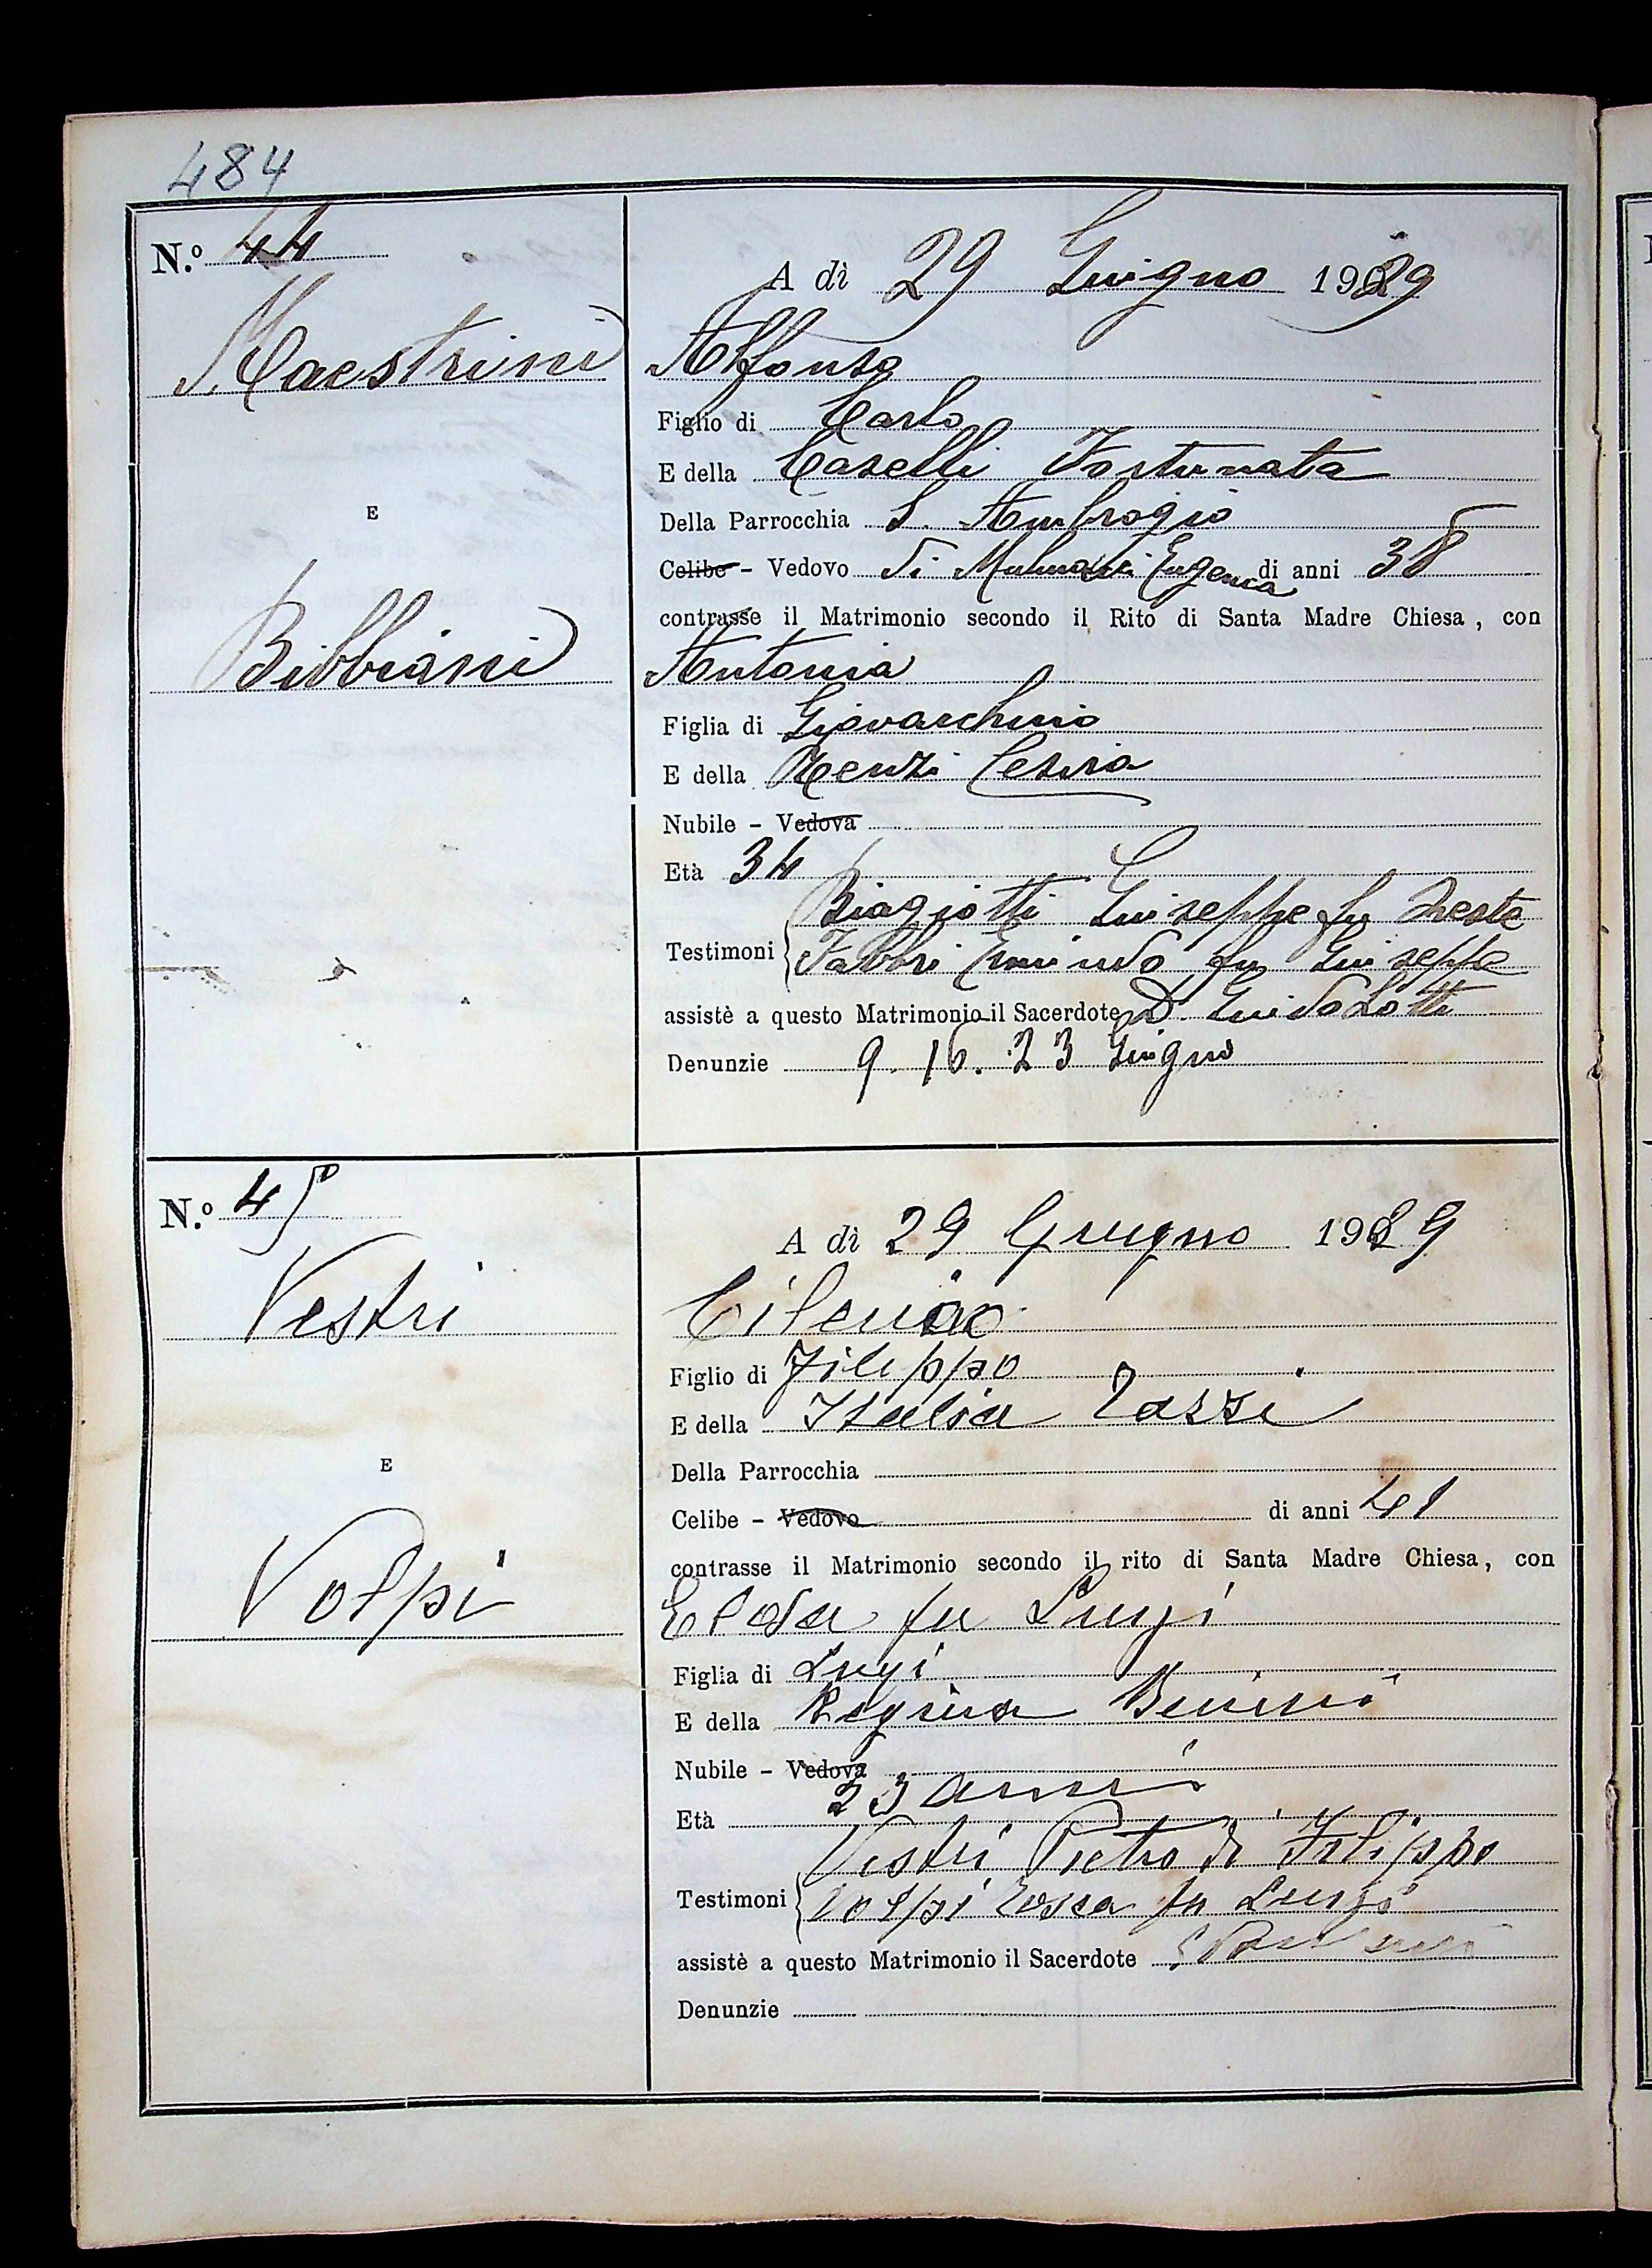 484
N.º 44
A dì 29 Giugno 1929
Maestrini
Alfonso
Figlio di Carlo
E della Caselli Fortunata
Della Parrocchia S. Ambrogio
E
Celibe - Vedovo di Eugenia di anni 38
contrasse il Matrimonio secondo il Rito di Santa Madre Chiesa, con
Bibbiani
Antonia
Figlia di Giovacchino
E della Renzi Cesira
Nubile - Vedova
Età 34
Biagiotti Giuseppe fu Oreste
Testimoni Fabbri fu Giuseppe
assistè a questo Matrimonio il Sacerdote D. Guido Lotti
Denunzie 9. 16. 23 Giugno
N.º 45
A dì 29 Giugno 1929
Vestri
Figlio di Filippo
E della Italia Tassi
Della Parrocchia
E
Celibe - Vedovo di anni 41
contrasse il Matrimonio secondo il rito di Santa Madre Chiesa, con
Volpi
Elda fu Luigi
Figlia di Luigi
E della Regina Benini
Nubile - Vedova
Età 23 anni
Vestri Pietro di Filippo
Testimoni Volpi fu Luigi
assistè a questo Matrimonio il Sacerdote
Denunzie